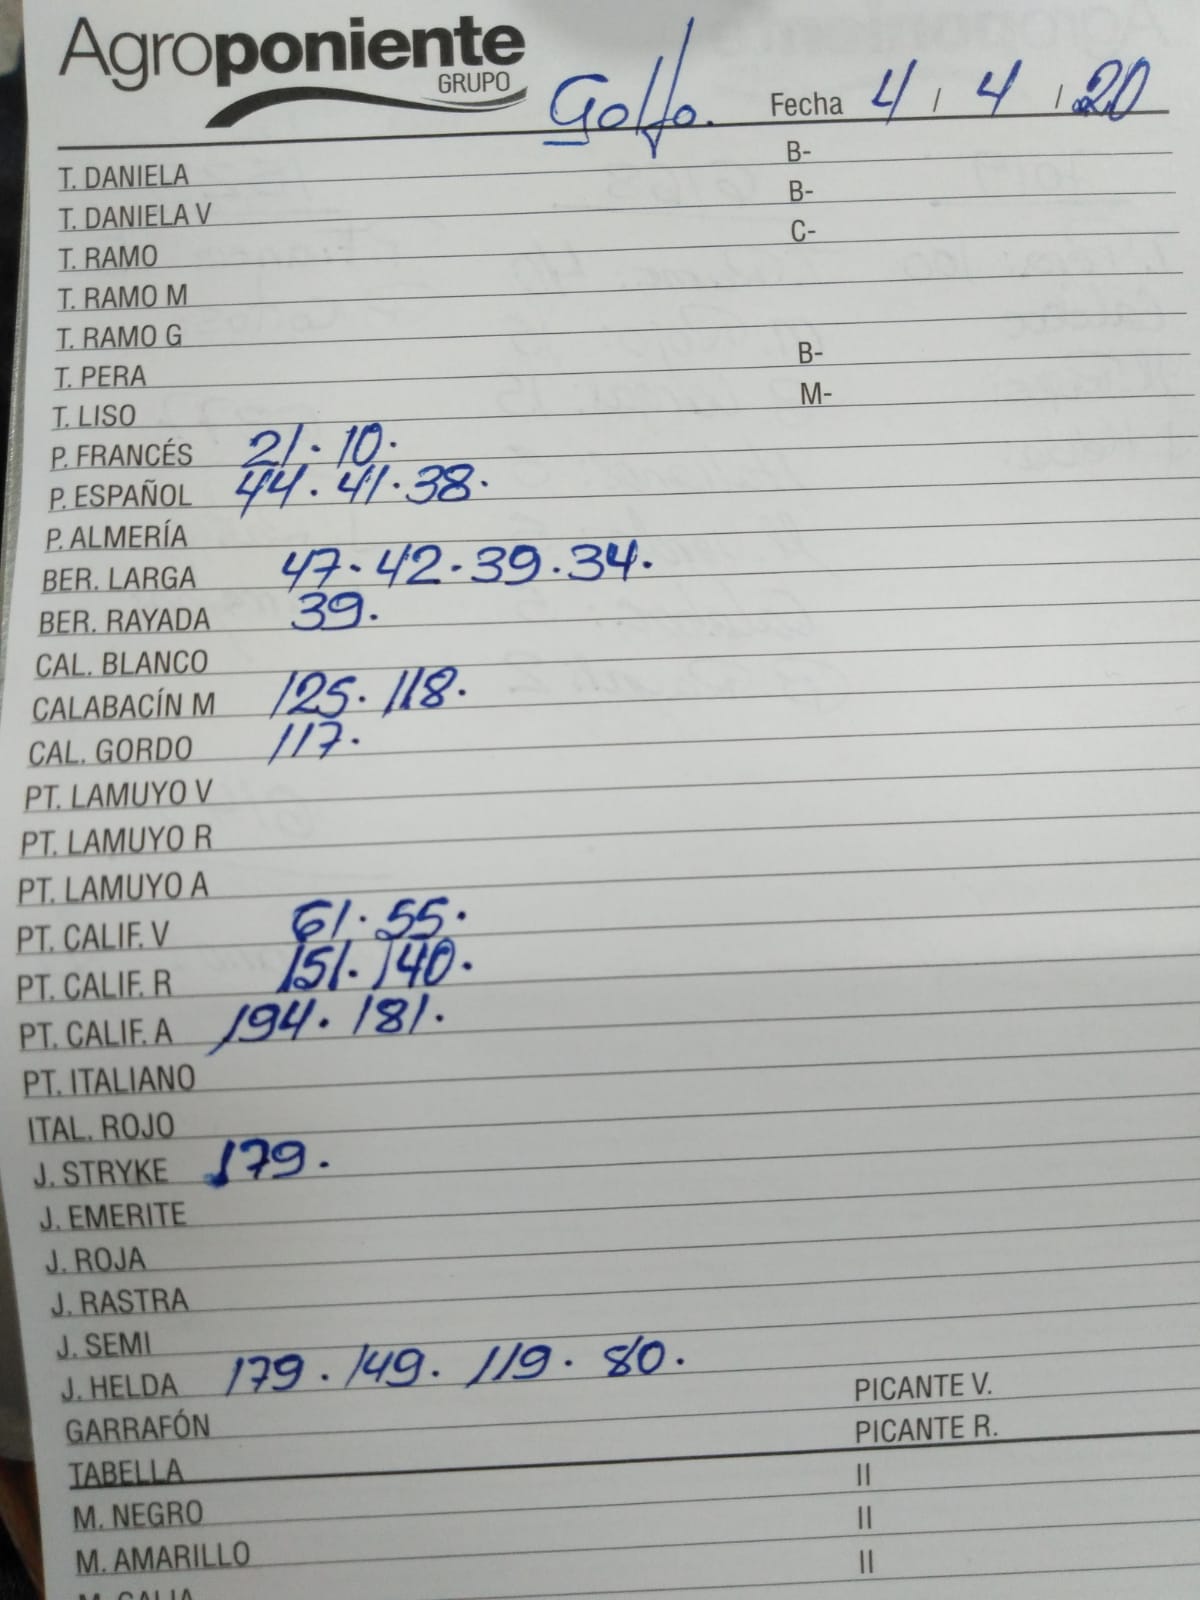 Agroponiente
GRUPO
Golfo. Fecha 4 / 4 / 20
T. DANIELA B-
T. DANIELA V B-
T. RAMO C-
T. RAMO M
T. RAMO G
T. PERA B-
T. LISO M-
P. FRANCÉS 21. 10.
P. ESPAÑOL 44. 41. 38.
P. ALMERÍA
BER. LARGA 47. 42. 39. 34.
BER. RAYADA 39.
CAL. BLANCO
CALABACÍN M 125. 118.
CAL. GORDO 117.
PT. LAMUYO V
PT. LAMUYO R
PT. LAMUYO A
PT. CALIF. V 61. 55.
PT. CALIF. R 151. 140.
PT. CALIF. A 194. 181.
PT. ITALIANO
ITAL. ROJO
J. STRYKE 179.
J. EMERITE
J. ROJA
J. RASTRA
J. SEMI
J. HELDA 179. 149. 119. 80.
GARRAFÓN PICANTE V.
TABELLA PICANTE R.
M. NEGRO II
M. AMARILLO II
M. GALIA II